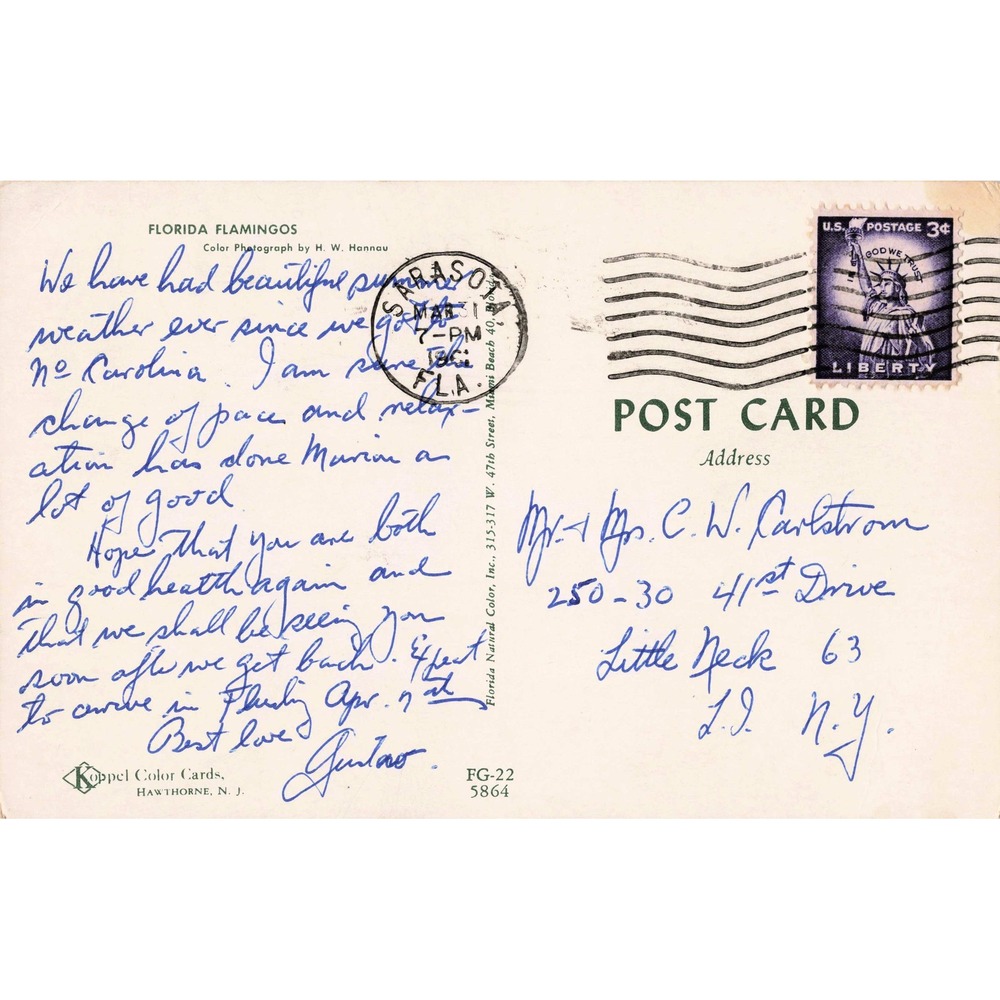 FLORIDA FLAMINGOS
Color Photograph by H. W. Hannau
We have had beautiful summer
weather ever since we got to
No Carolina. I am sure the
change of pace and relax-
ation has done Marion a
lot of good
Hope that you are both
in good health again and
that we shall be seeing you
soon after we get back. Expect
to arrive in Flushing Apr. 7th
Best love
Gustav.
Koppel Color Cards,
HAWTHORNE, N. J.
FG-22
5864
Florida Natural Color, Inc., 315-317 W. 47th Street, Miami Beach 40,
SARASOTA
MAR 1
7-PM
FLA.
U.S. POSTAGE 3¢
IN GOD WE TRUST
LIBERTY
POST CARD
Address
Mr. + Mrs. C. W. Carlstrom
250-30 41st Drive
Little Neck 63
L.I. N.Y.